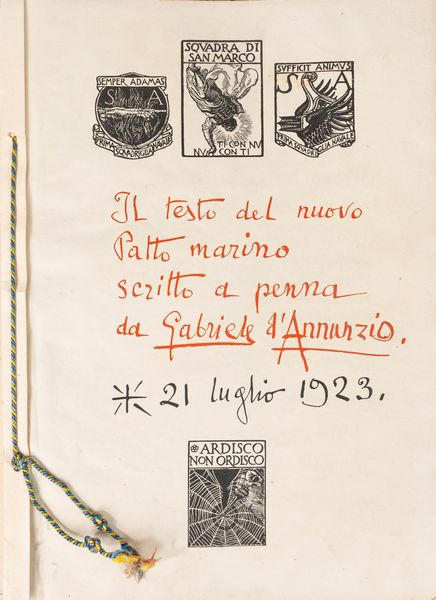 SQVADRA DI
SAN MARCO
TI CON NV
NV CON TI
SEMPER ADAMAS
S A
PRIMA SQVADRIGLIA NAVALE
SVFFICIT ANIMVS
S A
PRIMA SQVADRIGLIA NAVALE
Il testo del nuovo
Patto marino
scritto a penna
da Gabriele d'Annunzio.
21 luglio 1923.
ARDISCO
NON ORDISCO